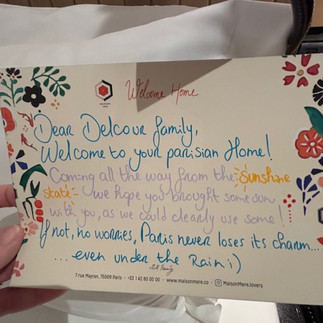 Welcome Home
Dear Delcour family,
Welcome to your parisian Home!
Coming all the way from the Sunshine
state - we hope you brought some sun
with you, as we could clearly use some!
If not, no worries, Paris never loses its charm...
... even under the Rain ;)
7 rue Mayran, 75009 Paris www.maisonmere.co MaisonMere.lovers